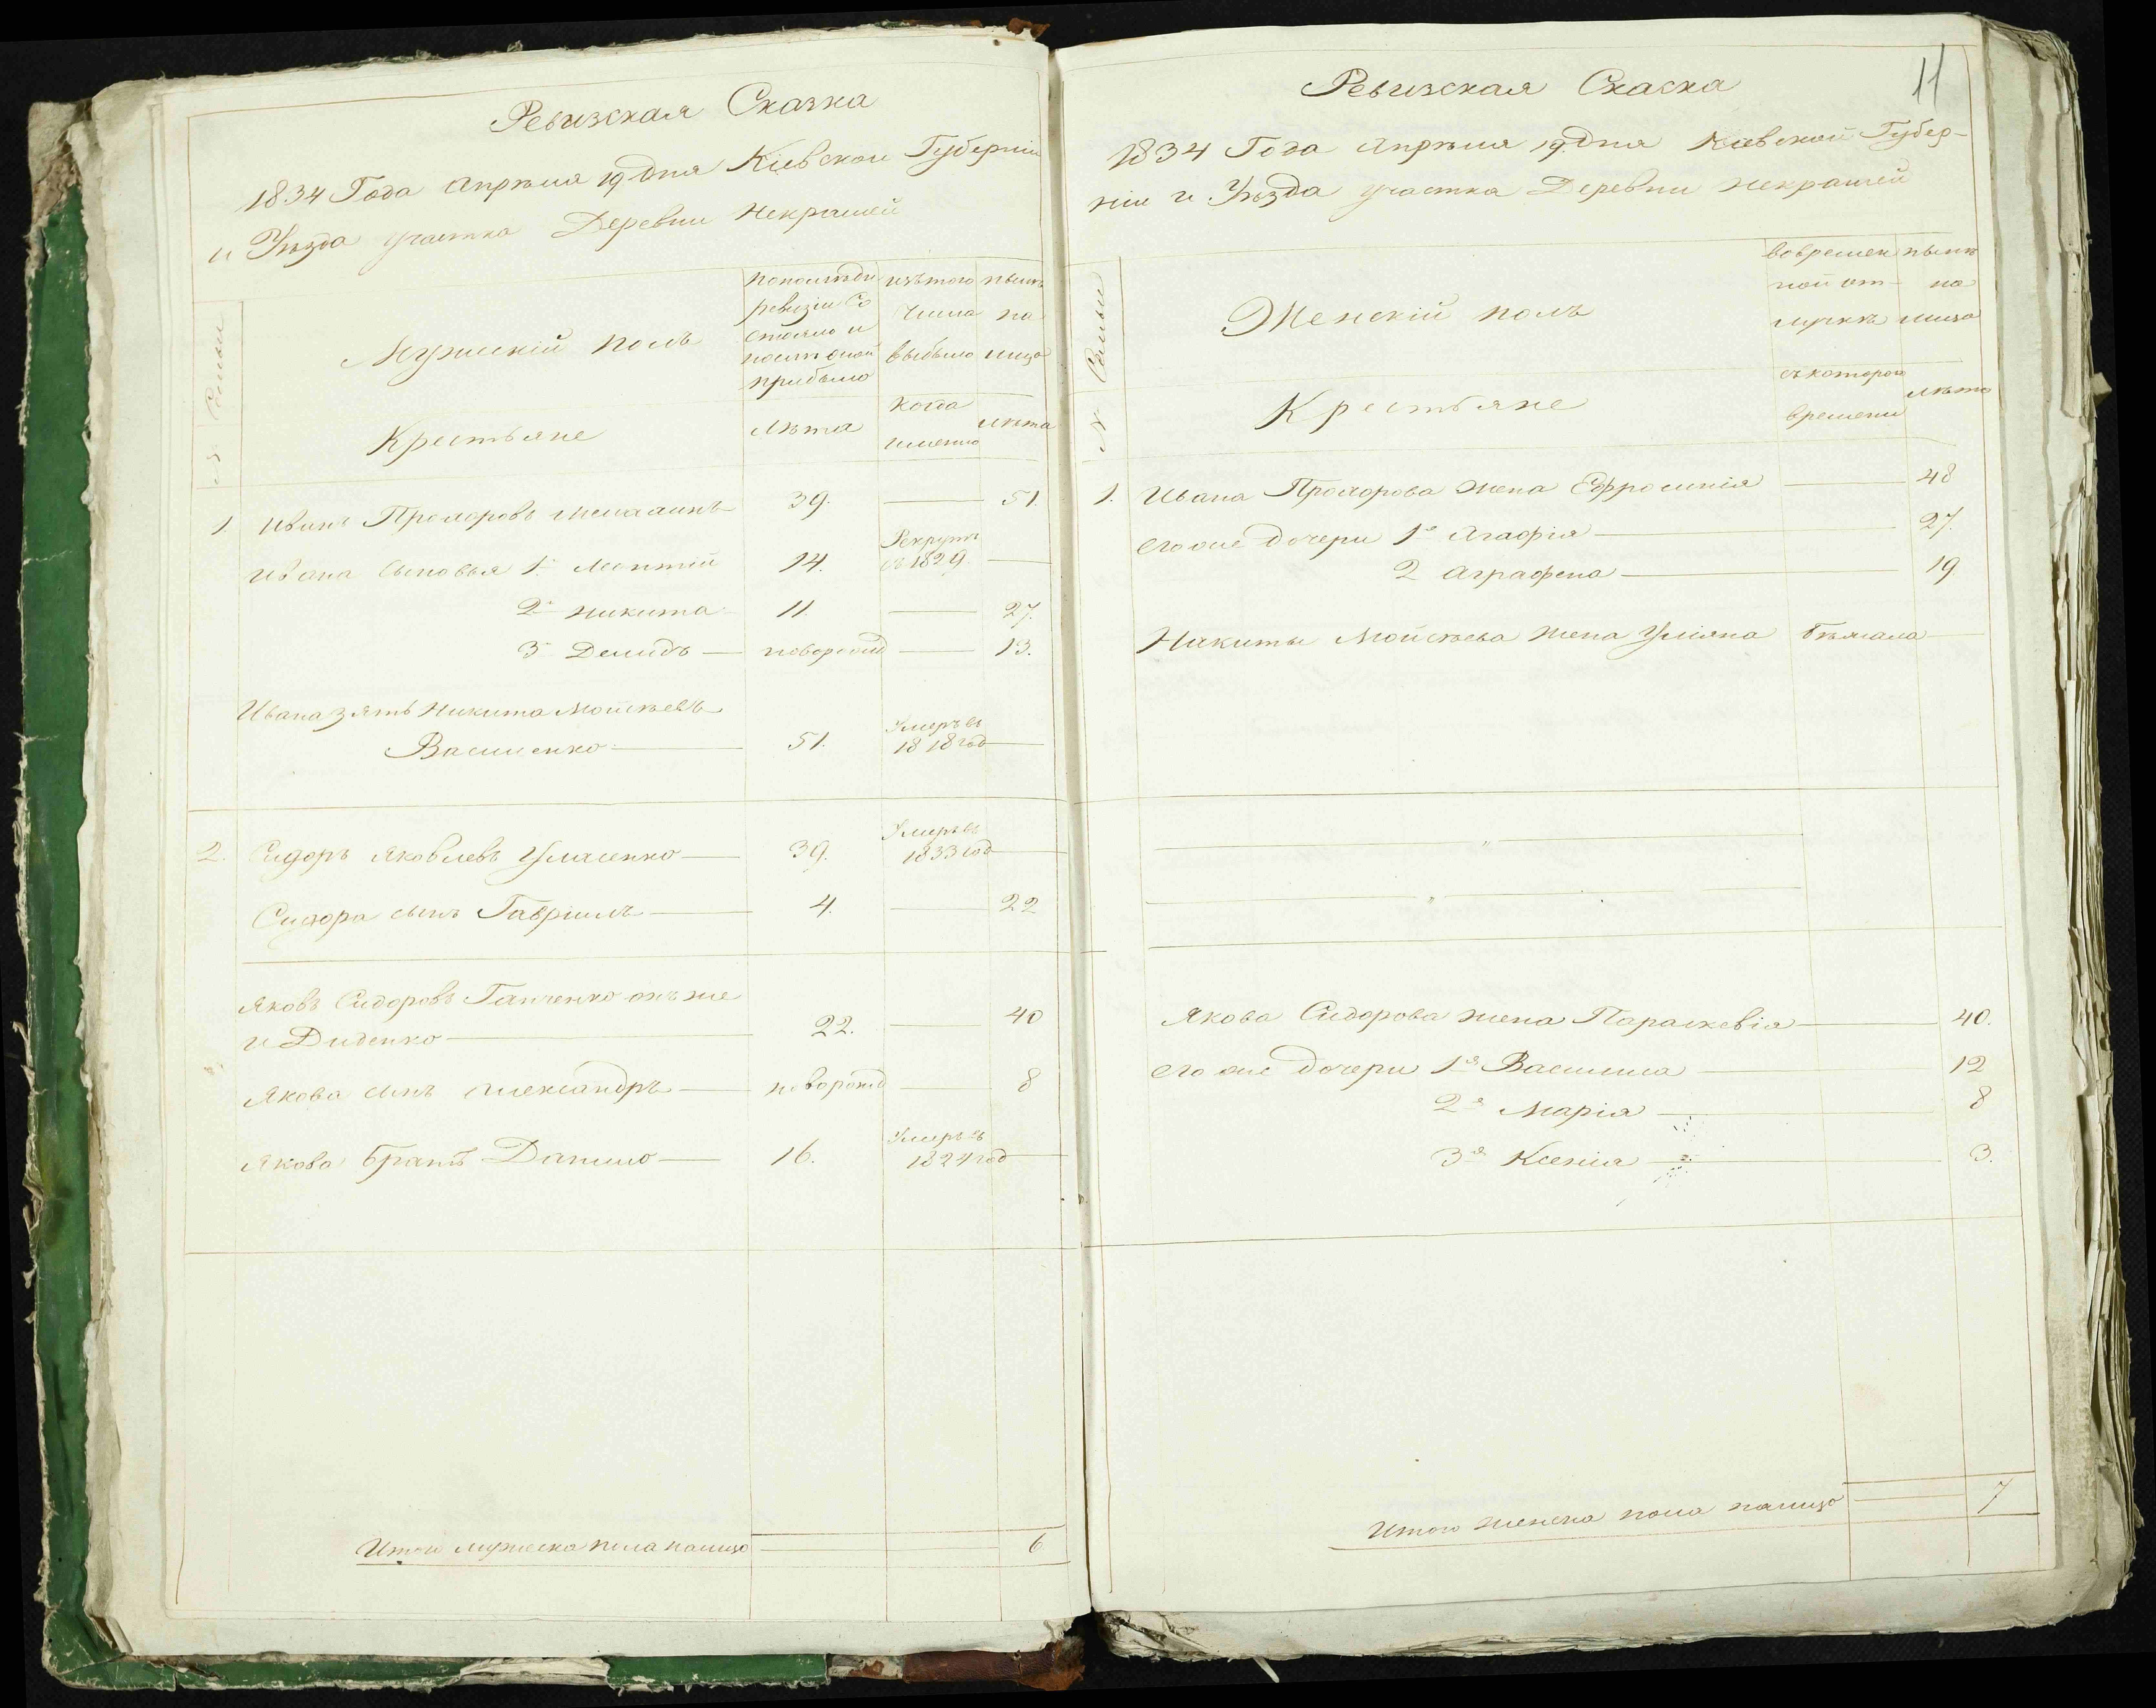 Ревизская Сказка
1834 Года Апрѣля 19 дня Кіевской Губерніи
и Уѣзда участка Деревни Некрашей
Семьи
Мужескій полъ
Крестьяне
по последн
ревизіи Со
стояло и
после оной
прибыло
лѣта
изъ того
числа
выбыло
когда
именно
нынѣ
на
лицо
лѣта
1. Иванъ Прохоровъ 39. 51.
Ивана сыновья 1. Леонтій 14. Рекрутъ съ 1829.
2. Никита 11. 27.
3 Демидъ новорожд 13.
Ивана зять Никита Мойсѣевъ
Василенко 51. Умеръ въ 1818 год
2. Сидоръ Яковлевъ 39. Умеръ въ 1833 год
Сидора сынъ Гавріилъ 4. 22
Яковъ Сидоровъ Ганченко онъ же
и Диденко 22. 40
Якова сынъ Александръ новорожд 8
Якова братъ Данило 16. Умеръ въ 1824 год
Итого мужеска пола налицо 6
11
Ревизская Скаска
1834 Года Апрѣля 19 дня Кіевской Губер-
ніи и Уѣзда участка Деревни Некрашей
№ Семьи
Женскій полъ
Крестьяне
во времен
ной от-
лучкѣ
съ котораго
времени
нынѣ
на
лицо
лѣта
1. Ивана Прохорова жена Ефросинія 48
его же дочери 1я Агафія 27.
2 Аграфена 19
Никиты Мойсѣева жена Уліяна бѣжала
Якова Сидорова жена Параскевія 40.
его же дочери 1я Василиса 12
2я Марія 8
3я Ксенія 3.
Итого женска пола налицо 7